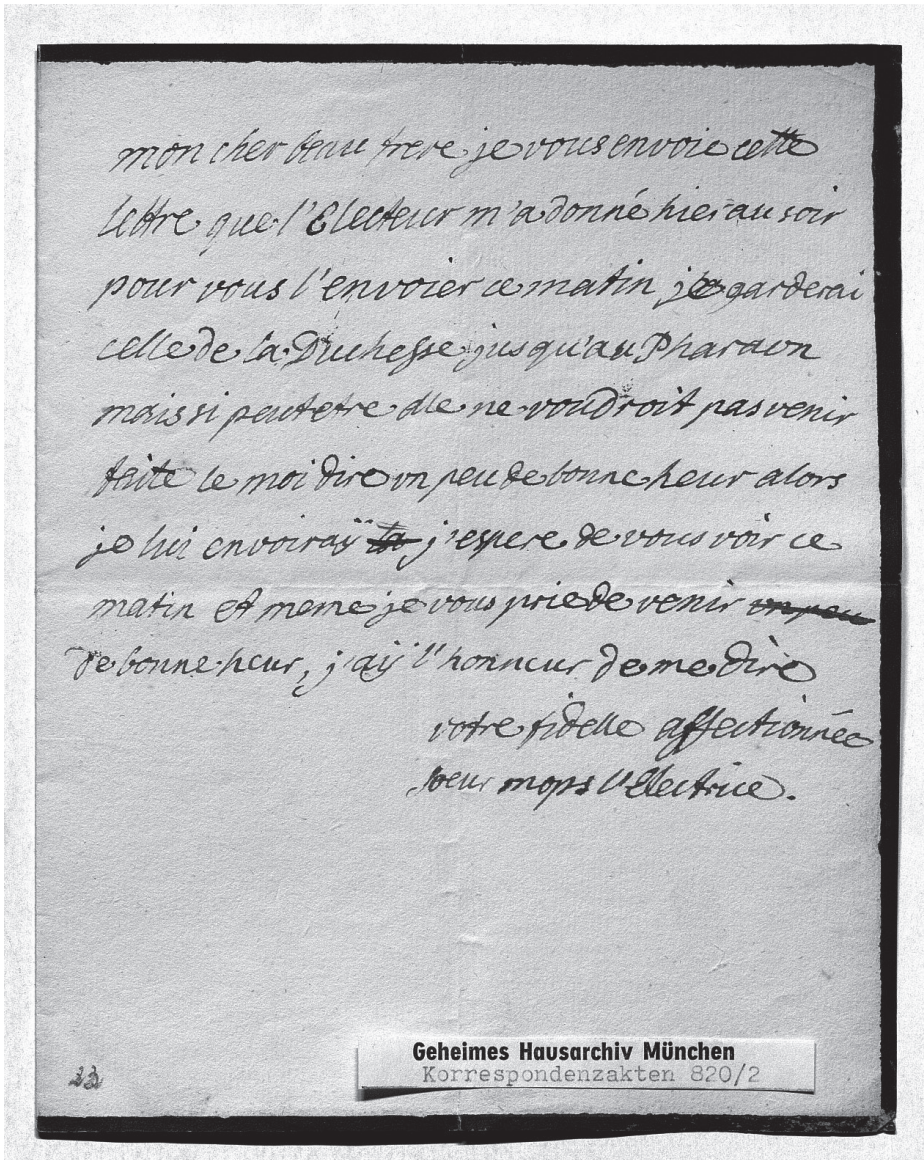 mon cher beau frere je vous envoie cette
lettre que l'Electeur m'a donné hier au soir
pour vous l'envoier ce matin je garderai
celle de la Duchesse jusqu'au Pharaon
mais si peutetre elle ne voudroit pas venir
faite le moi dire un peu de bonne heur alors
je lui envoiraÿ la j'espere de vous voir ce
matin et meme je vous prie de venir un peu
de bonne heur, j'aÿ l'honneur de me dire
votre fidelle affectionnée
soeur mops l'Electrice.
Geheimes Hausarchiv München
Korrespondenzakten 820/2